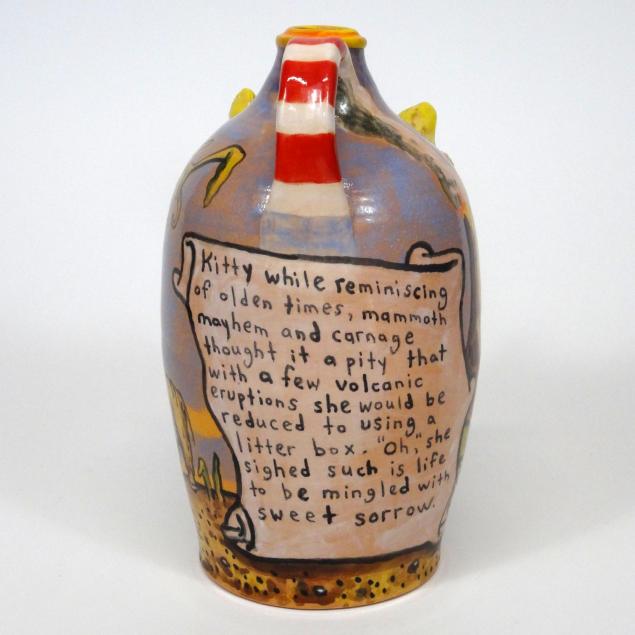 Kitty while reminiscing
of olden times, mammoth
mayhem and carnage
thought it a pity that
with a few volcanic
eruptions she would be
reduced to using a
litter box. "Oh," she
sighed such is life
to be mingled with
sweet sorrow.